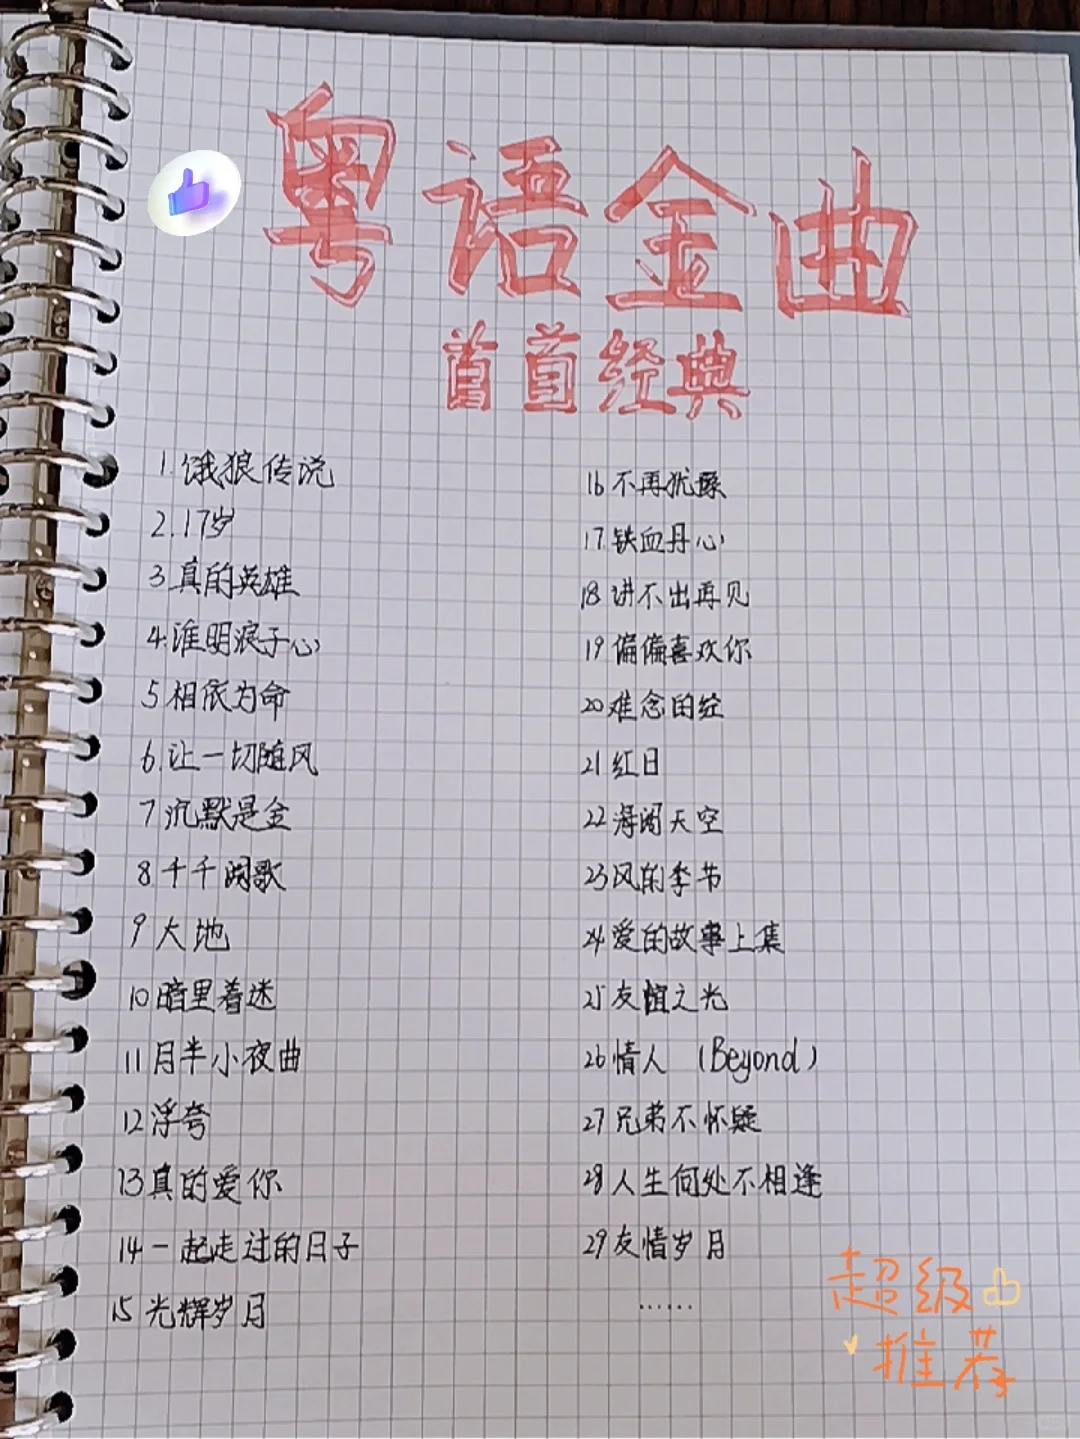 粤语金曲
首首经典
1.饿狼传说
2.17岁
3.真的英雄
4.谁明浪子心
5相依为命
6.让一切随风
7沉默是金
8千千阕歌
9大地
10暗里着迷
11月半小夜曲
12浮夸
13真的爱你
14一起走过的日子
15光辉岁月
16不再犹豫
17.铁血丹心
18讲不出再见
19偏偏喜欢你
20难念的经
21红日
22海阔天空
23风的季节
24爱的故事上集
25友谊之光
26情人 (Beyond)
27兄弟不怀疑
28人生何处不相逢
29友情岁月
……
超级
推荐